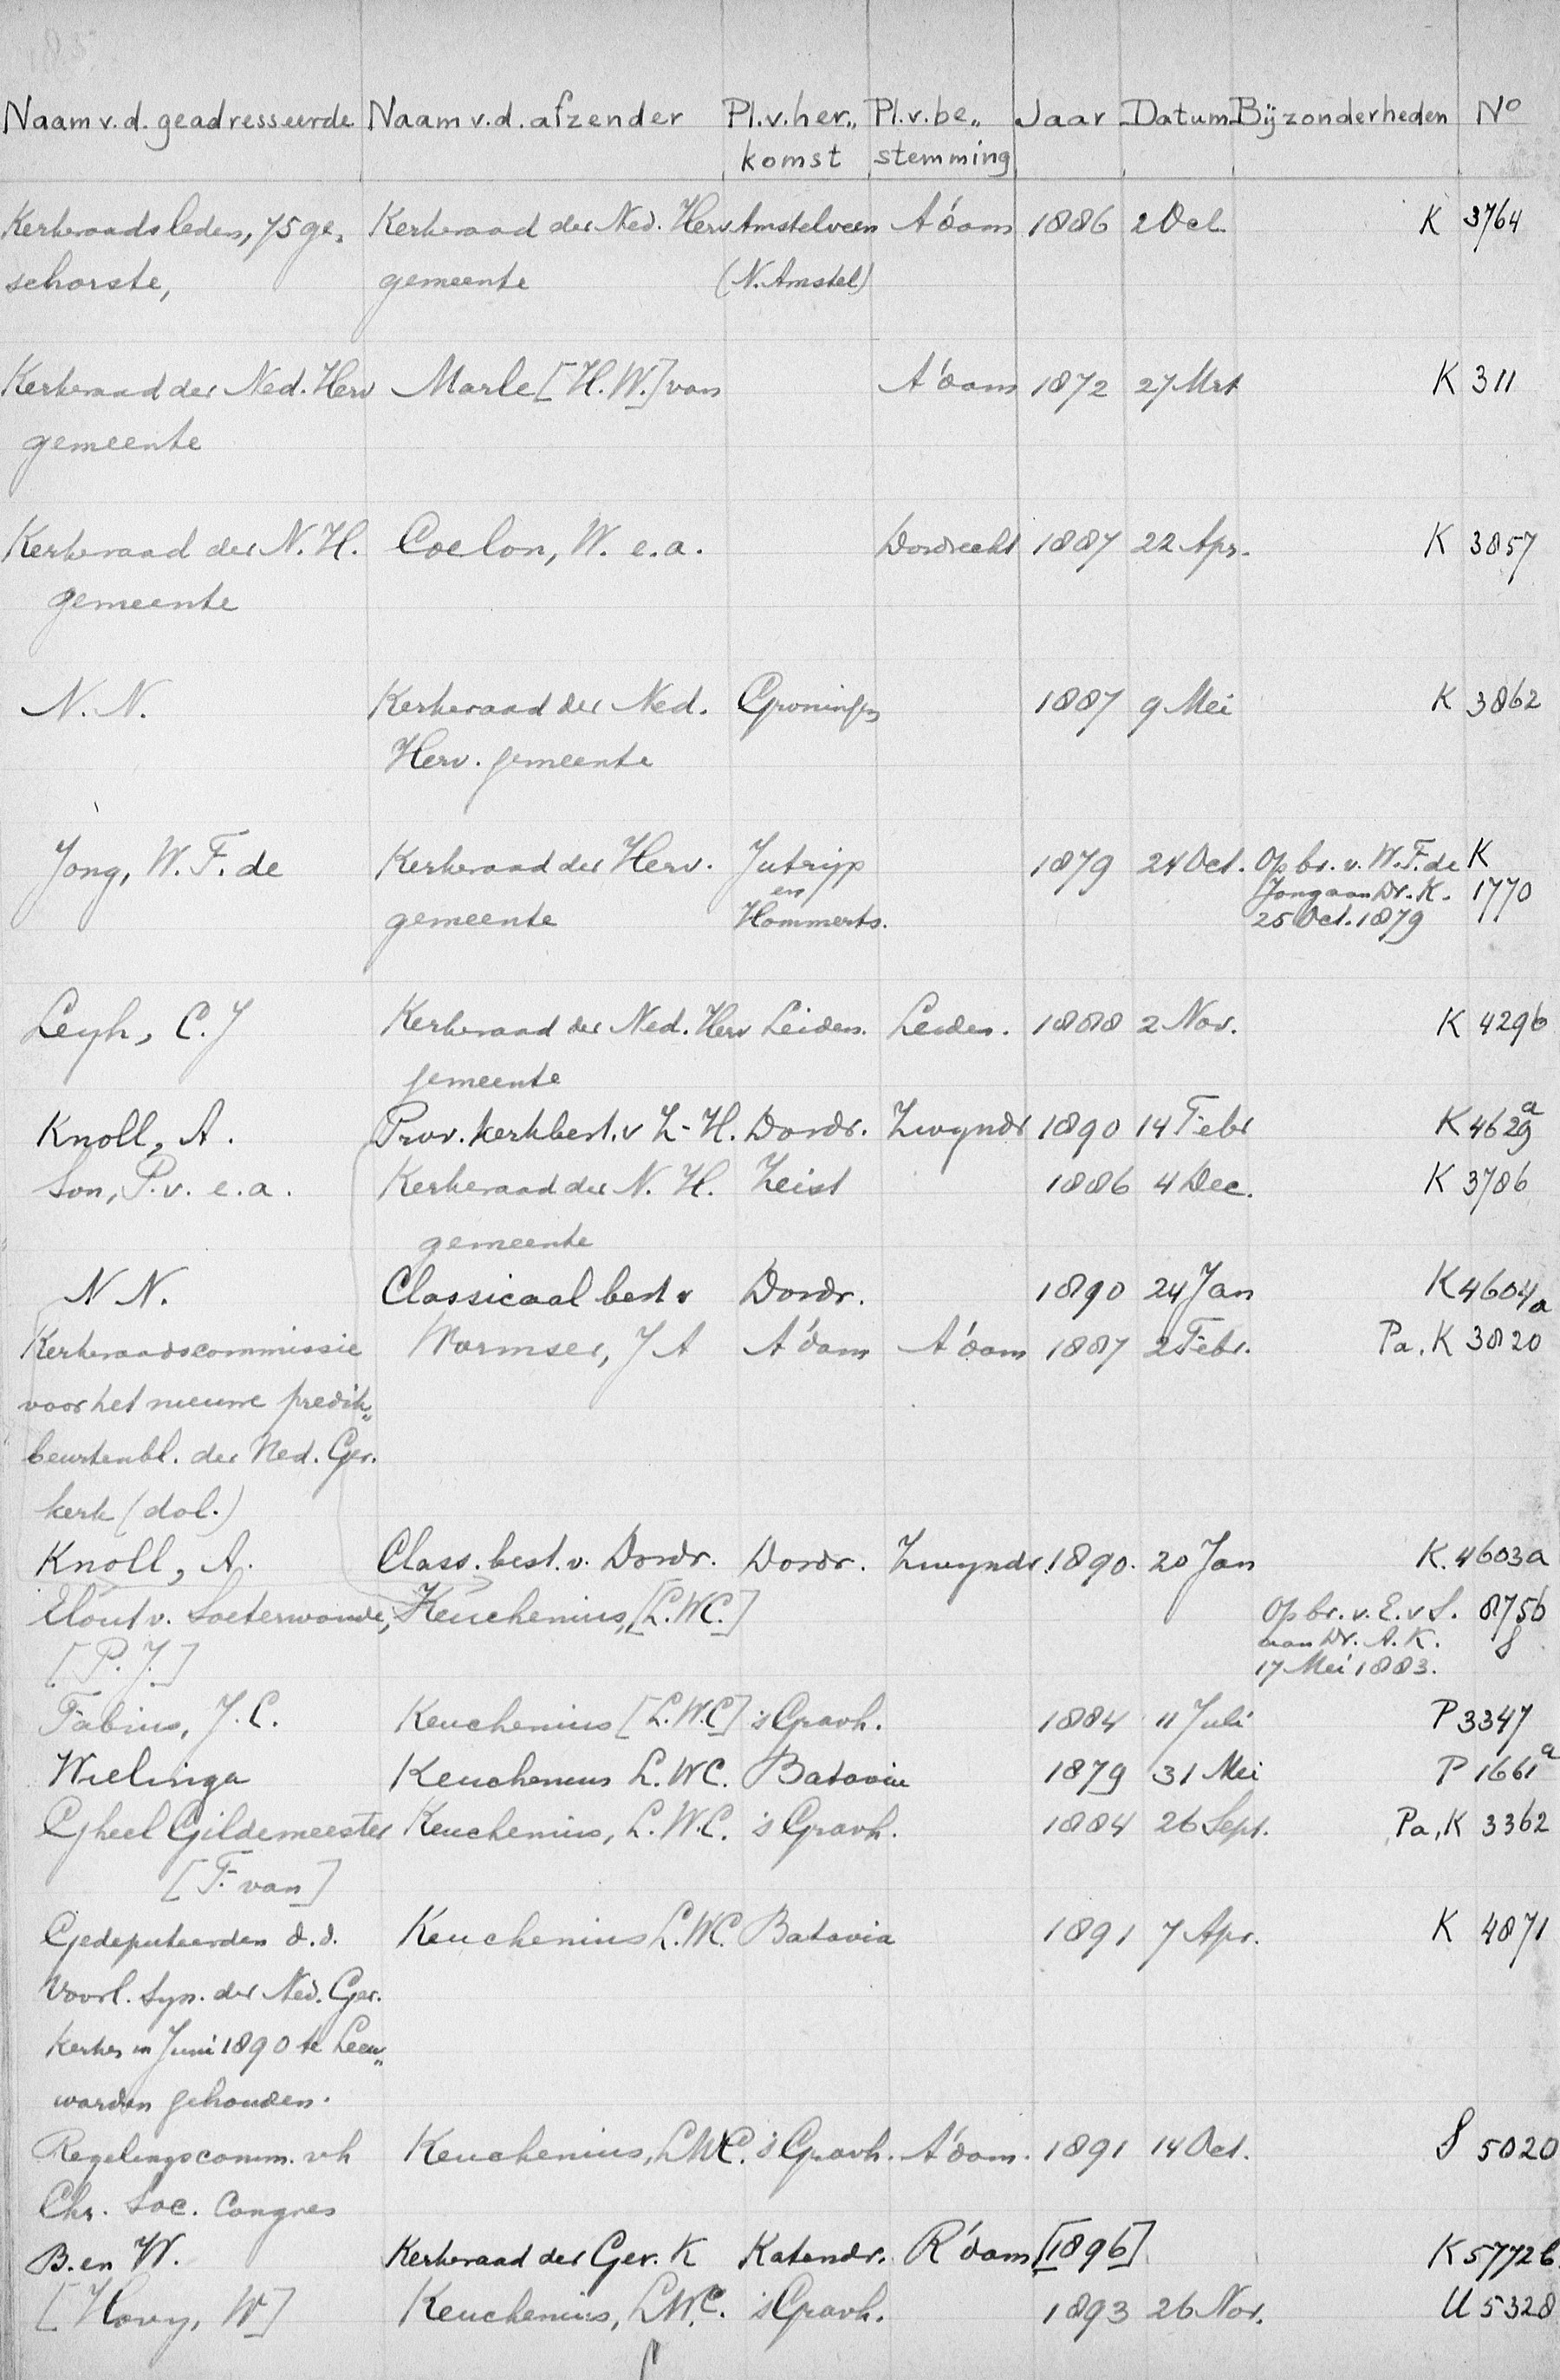 Naam v.d. geadresseerde Naam v.d. afzender Pl.v.her„ Pl.v.be„ Jaar Datum Bijzonderheden No
komst stemming
Kerkeraadsleden, 75 ge„ Kerkeraad der Ned. Herv Amstelveen A'dam 1886 2 Oct. K 3764
schorste, gemeente (N. Amstel)
Kerkeraad der Ned. Herv Marle [H.W.] van A'dam 1872 27 Mrt K 311
gemeente
Kerkeraad der N.H. Coelon, W. e.a. Dordrecht 1887 22 Apr. K 3857
gemeente
N.N. Kerkeraad der Ned. Groningen 1887 9 Mei K 3862
Herv. gemeente
Jong, W.F. de Kerkeraad der Herv. Jutrijp 1879 24 Oct. Op br. v. W.F. de K
en Jong aan Dr. K. 1770
gemeente Hommerts. 25 Oct. 1879
Leyh, C.J Kerkeraad der Ned. Herv Leiden. Leiden. 1888 2 Nov. K 4296
gemeente
Knoll, A. Prov. kerkbest. v Z-H. Dordr. Zwyndr 1890 14 Febr K 4629a
Son, P.v. e.a. Kerkeraad der N.H. Zeist 1886 4 Dec. K 3786
gemeente
N N. Classicaal best v Dordr. 1890 24 Jan K 4604a
Kerkeraadscommissie Wormser, J A A'dam A'dam 1887 2 Febr. Pa. K 3820
voor het nieuwe predik„
beurtenbl. der Ned. Ger.
kerk (dol.)
Knoll, A. Class. best. v. Dordr. Dordr. Zwyndr. 1890. 20 Jan K. 4603a
Elout v. Soeterwoude, Keuchenius, [L.W.C.] Op br. v. E. v S. 8756
aan Dr. A.K. S
[P.J.] 17 Mei 1883.
Fabius, J.C. Keuchenius [L.W.C] 's Gravh. 1884 11 Juli P 3347
Wielinga Keuchenius L.W.C. Batavia 1879 31 Mei P 1661a
Gheel Gildemeester Keuchenius, L.W.C. 's Gravh. 1884 26 Sept. Pa, K 3362
[F. van]
Gedeputeerden d.d. Keuchenius L.W.C. Batavia 1891 7 Apr. K 4871
Voorl. Syn. der Ned. Ger.
Kerken in Juni 1890 te Leeu„
warden gehouden.
Regelingscomm. vh Keuchenius, L.W.C. 's Gravh. A'dam. 1891 14 Oct. S 5020
Chr. Soc. Congres
B. en W. Kerkeraad der Ger. K Katendr. R'dam [1896] K 5772b
[Hovy, W] Keuchenius, L.W.C. 's Gravh. 1893 26 Nov. U 5328